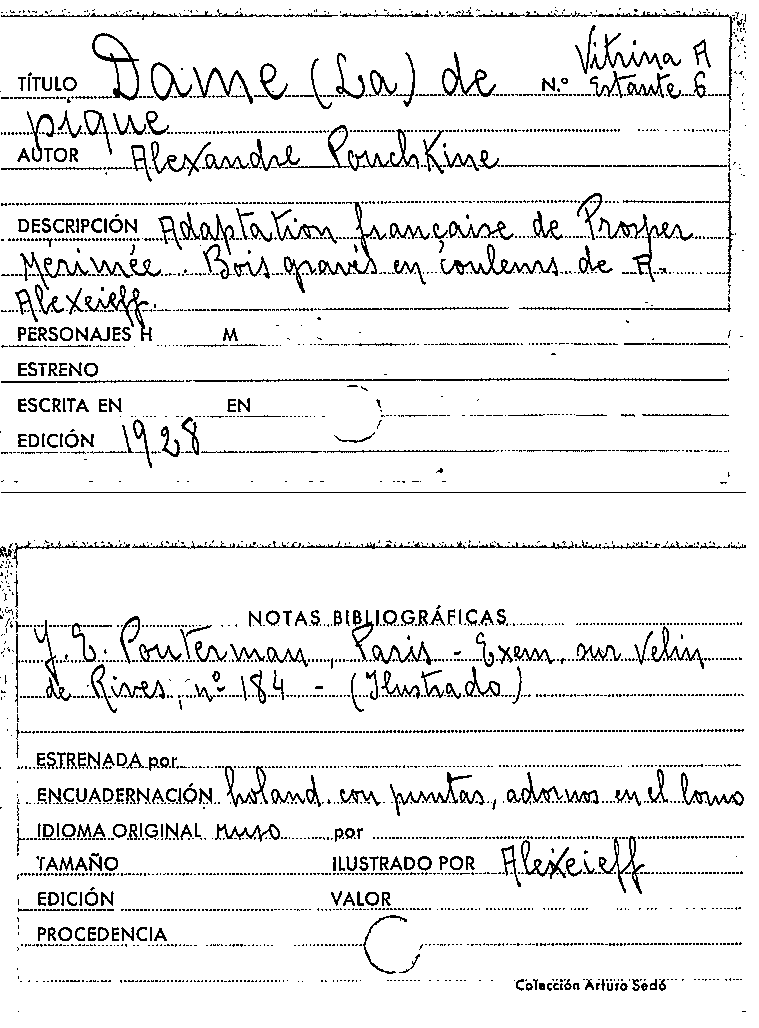 Vitrina A
TÍTULO Dame (La) de N.º Estante 6
pique
AUTOR Alexandre Pouchkine
DESCRIPCIÓN Adaptation française de Prosper
Mérimée. Bois gravés en couleurs de A.
Alexeieff.
PERSONAJES H M
ESTRENO
ESCRITA EN EN
EDICIÓN 1928
NOTAS BIBLIOGRÁFICAS
J. E. Pouterman, Paris - Exem. sur Velin
de Rives, nº 184 - (Ilustrado)
ESTRENADA por
ENCUADERNACIÓN holand. con puntas, adornos en el lomo
IDIOMA ORIGINAL ruso por
TAMAÑO ILUSTRADO POR Alexeieff
EDICIÓN VALOR
PROCEDENCIA
Colección Arturo Sedó